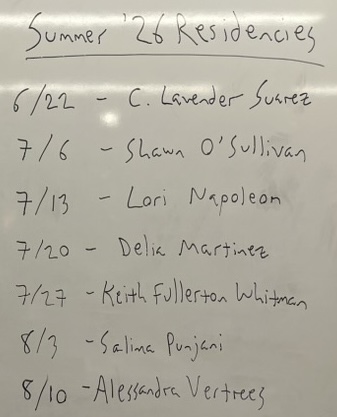 Summer '26 Residencies
6/22 - C. Lavender Suarez
7/6 - Shawn O'Sullivan
7/13 - Lori Napoleon
7/20 - Delia Martinez
7/27 - Keith Fullerton Whitman
8/3 - Salima Punjani
8/10 - Alessandra Vertrees